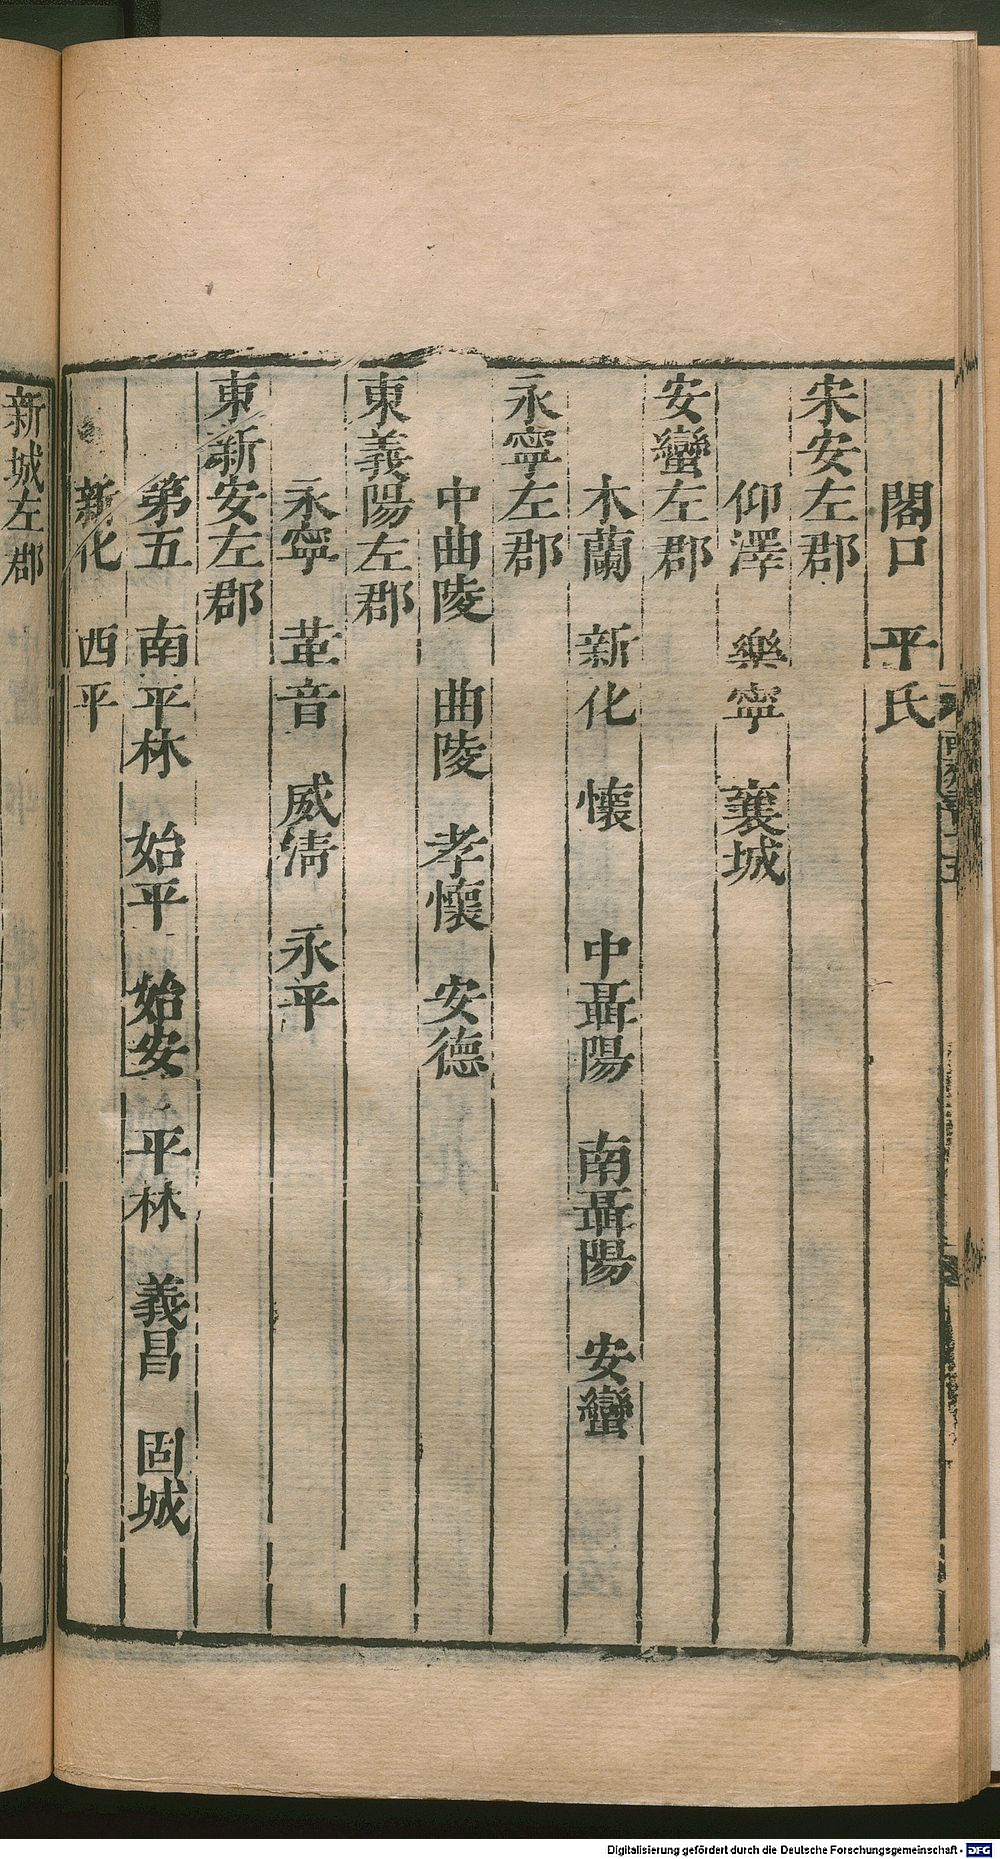 閣口　平氏
宋安左郡
仰澤　樂寧　襄城
安蠻左郡
木蘭　新化　懷　中聶陽　南聶陽　安蠻
永寧左郡
中曲陵　曲陵　孝懷　安德
東義陽左郡
永寧　革音　威清　永平
東新安左郡
第五　南平林　始平　始安　平林　義昌　固城
新化　西平
新城左郡
Digitalisierung gefördert durch die Deutsche Forschungsgemeinschaft - DFG